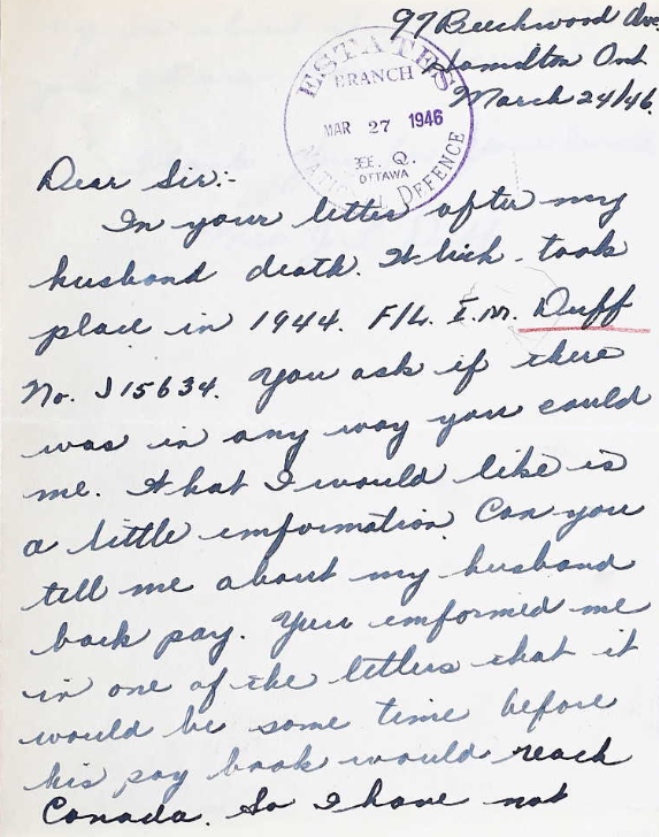 97 Beechwood Ave.
Hamilton Ont
March 24/46.
ESTATES
BRANCH
MAR 27 1946
H. Q.
OTTAWA
NATIONAL DEFENCE
Dear Sir:-
In your letter after my
husband death. Which took
place in 1944. F/L. I.M. Duff
No. J15634. You ask if there
was in any way you could
me. What I would like is
a little imformation Can you
tell me about my husband
back pay. You imformed me
in one of the letters that it
would be some time before
his pay book would reach
Canada. So I have not